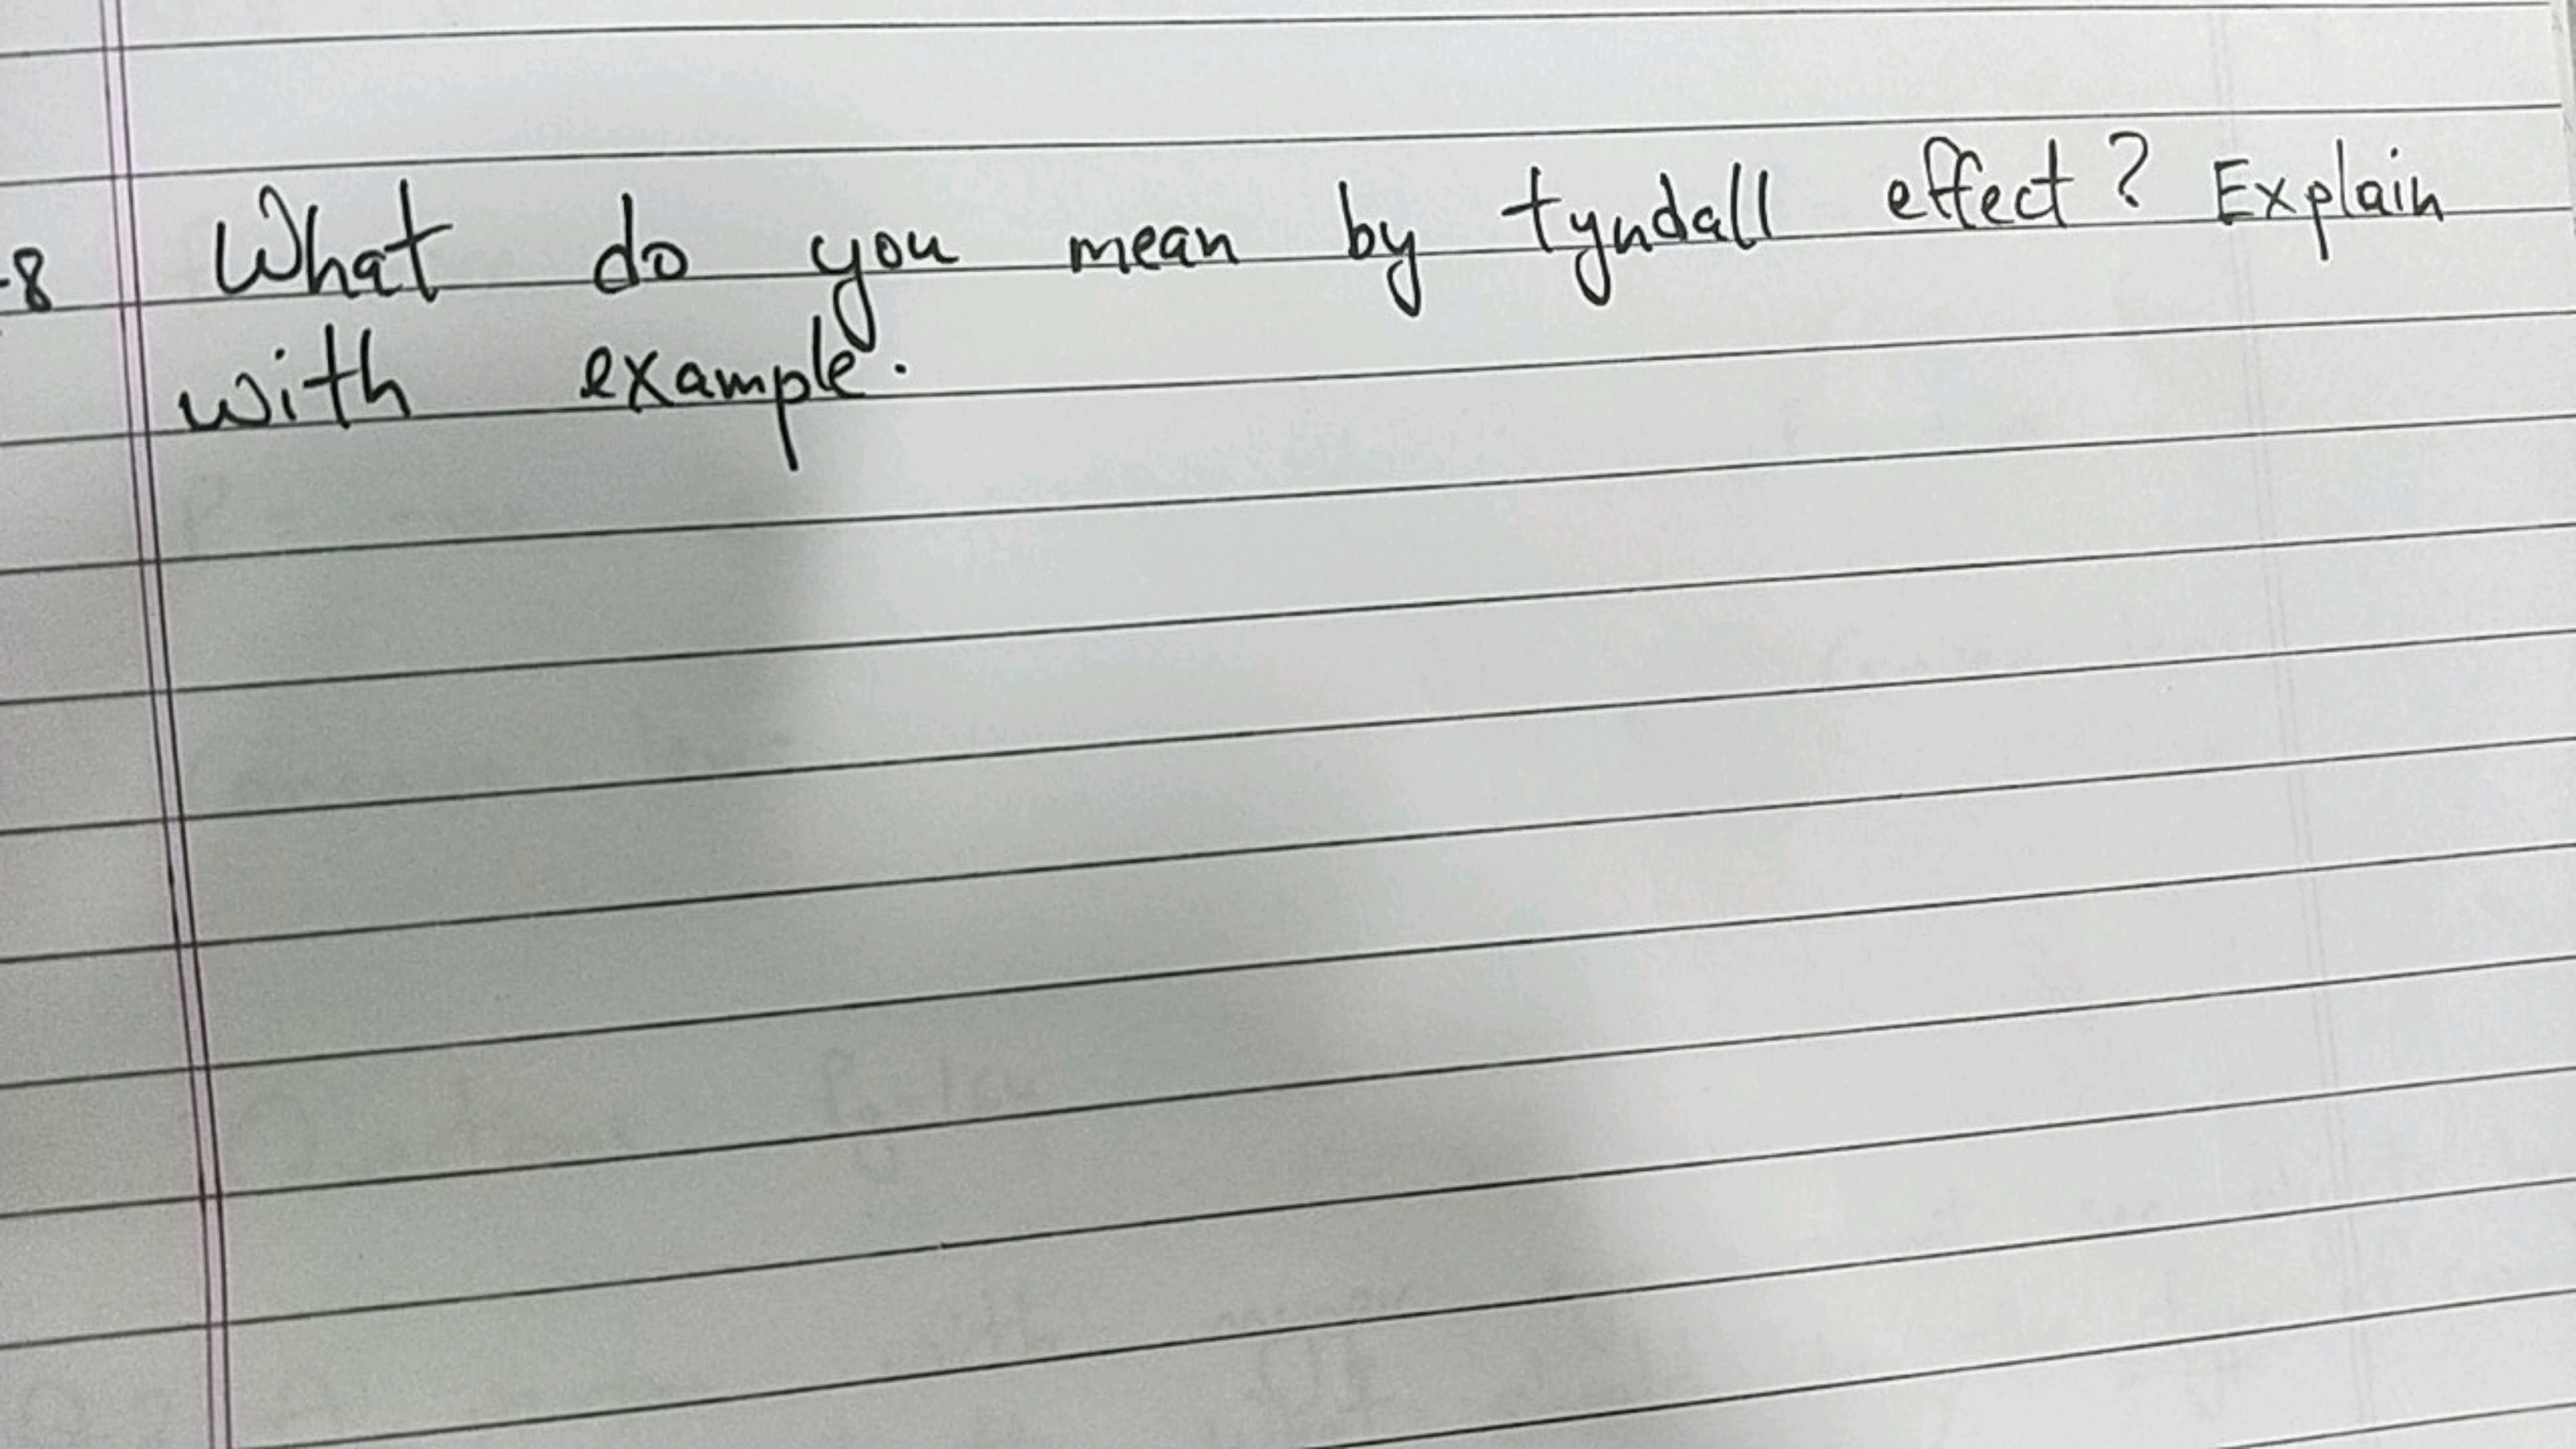 -8 What do you mean by tyndall effect? Explain
with example.